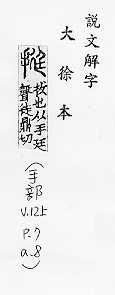 説文解字
大徐本
挺
拔也从手廷
聲徒鼎切
(手部
V.12上
P.7
a.8)